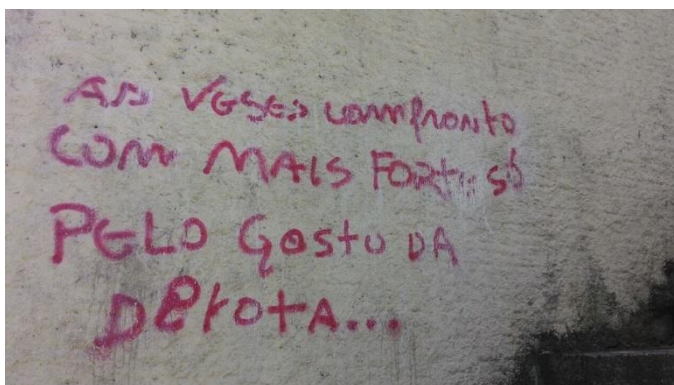 AS VESES comfronto
COM MAIS FORTE SÓ
PELO GOSTO DA
DEROTA...